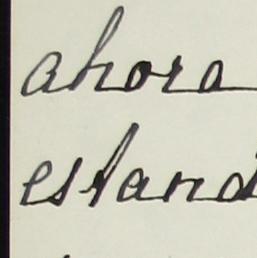 ahora
estand